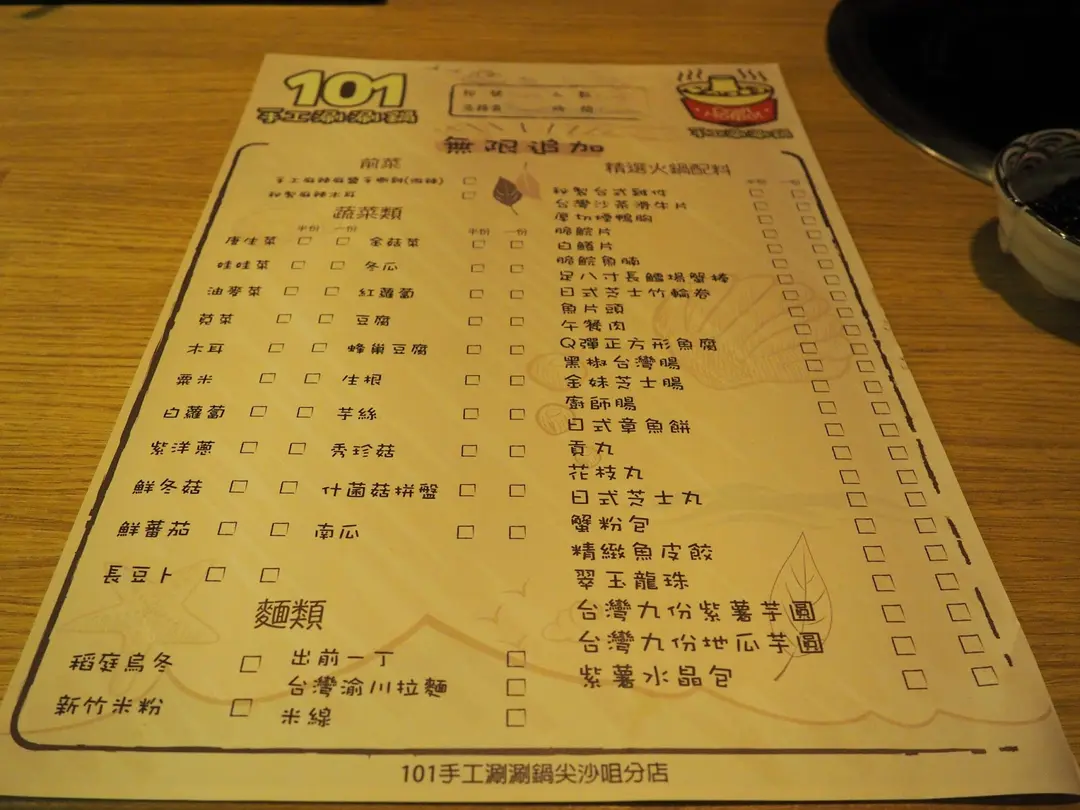 101
手工涮涮鍋
手工涮涮鍋
時間
無限追加
前菜
秘製麻辣木耳
蔬菜類
半份 一份
半份 一份
唐生菜 金菇菜
娃娃菜 冬瓜
油麥菜 紅蘿蔔
茼菜 豆腐
木耳 蜂巢豆腐
粟米 生根
白蘿蔔 芋絲
紫洋蔥 秀珍菇
鮮冬菇 什菌菇拼盤
鮮蕃茄 南瓜
長豆卜
麵類
稻庭烏冬 出前一丁
台灣渝川拉麵
新竹米粉 米線
精選火鍋配料
半份 一份
秘製台式雞件
台灣沙茶滑牛片
厚切煙鴨胸
脆鯇片
白鱔片
脆鯇魚腩
足八寸長鱈場蟹棒
日式芝士竹輪卷
魚片頭
午餐肉
Q彈正方形魚腐
黑椒台灣腸
金妹芝士腸
廚師腸
日式章魚餅
貢丸
花枝丸
日式芝士丸
蟹粉包
精緻魚皮餃
翠玉龍珠
台灣九份紫薯芋圓
台灣九份地瓜芋圓
紫薯水晶包
101手工涮涮鍋尖沙咀分店